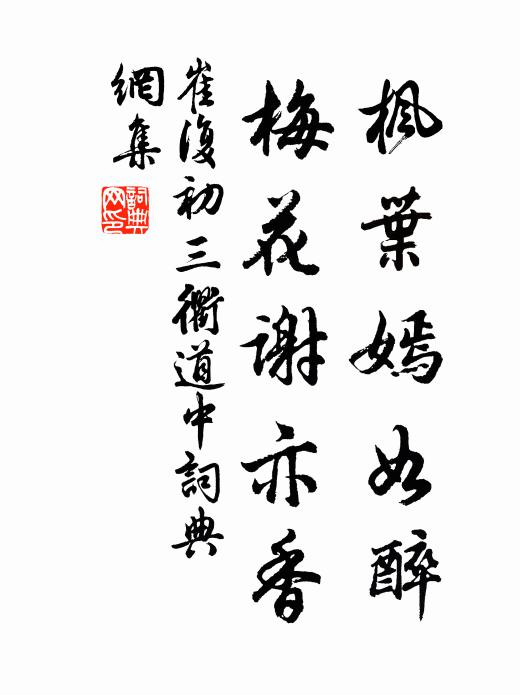 楓葉嫣如醉
梅花謝亦香
崔復初三衢道中詞典
網集
詞典網印